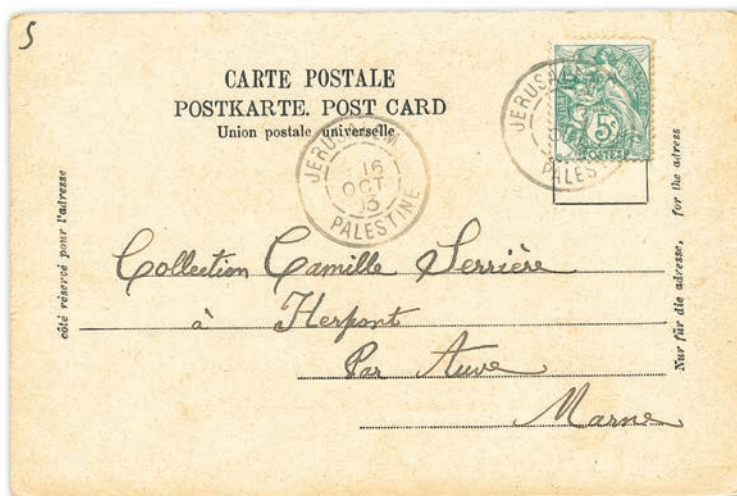 5
CARTE POSTALE
POSTKARTE. POST CARD
Union postale universelle
JERUSALEM
16
OCT
03
PALESTINE
JERUSALEM
PALESTINE
5c
POSTES
côté réservé pour l'adresse
Nur für die adresse, for the adress
Collection Camille Serrière
à Herpont
Par Auve
Marne